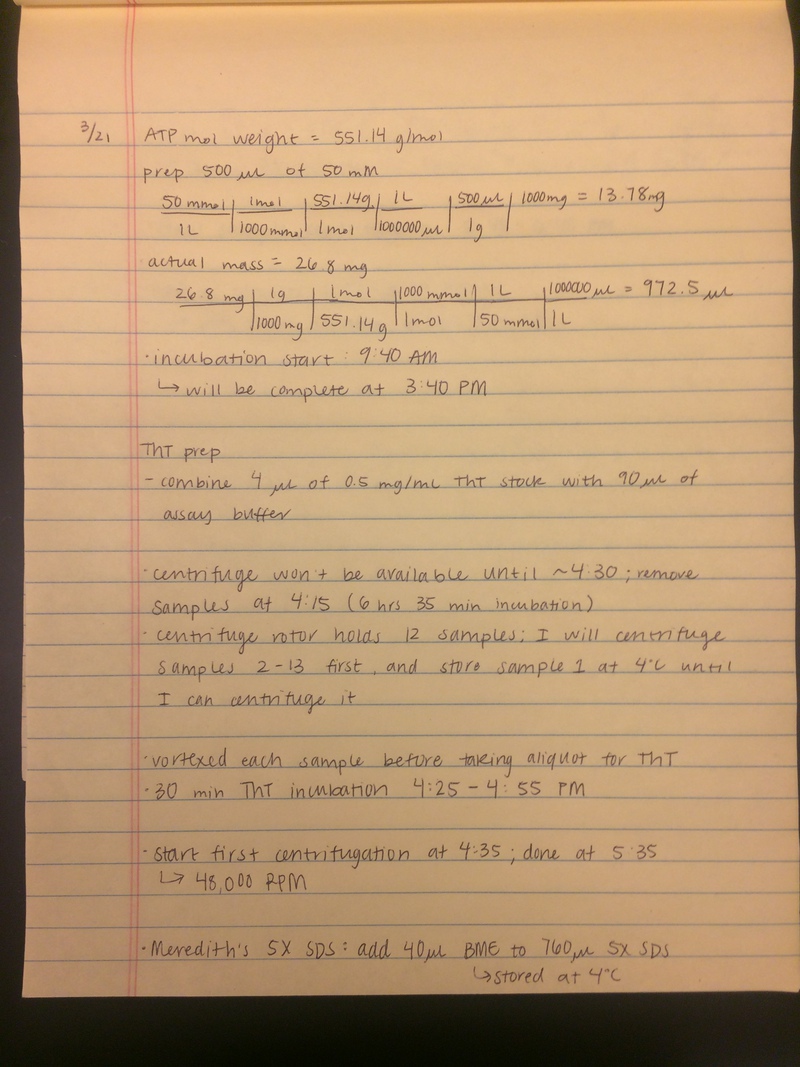 3/21 ATP mol weight = 551.14 g/mol
prep 500 µL of 50 mM
50 mmol | 1mol | 551.14g | 1L | 500 µL | 1000mg = 13.78mg
1L | 1000 mmol | 1mol | 1000000 µL | 1g |
· actual mass = 26.8 mg
26.8 mg | 1g | 1mol | 1000 mmol | 1L | 1000000 µL = 972.5 µL
| 1000 mg | 551.14 g | 1mol | 50 mmol | 1L
· incubation start : 9:40 AM
↳ will be complete at 3:40 PM
ThT prep
- combine 4 µL of 0.5 mg/mL ThT stock with 90 µL of
assay buffer
· centrifuge won't be available until ~4:30 ; remove
samples at 4:15 (6 hrs 35 min incubation)
· centrifuge rotor holds 12 samples; I will centrifuge
samples 2-13 first, and store sample 1 at 4°C until
I can centrifuge it
· vortexed each sample before taking aliquot for ThT
· 30 min ThT incubation 4:25 - 4:55 PM
· start first centrifugation at 4:35 ; done at 5:35
↳ 48,000 RPM
· Meredith's 5X SDS : add 40µL BME to 760µL 5X SDS
↳ stored at 4°C